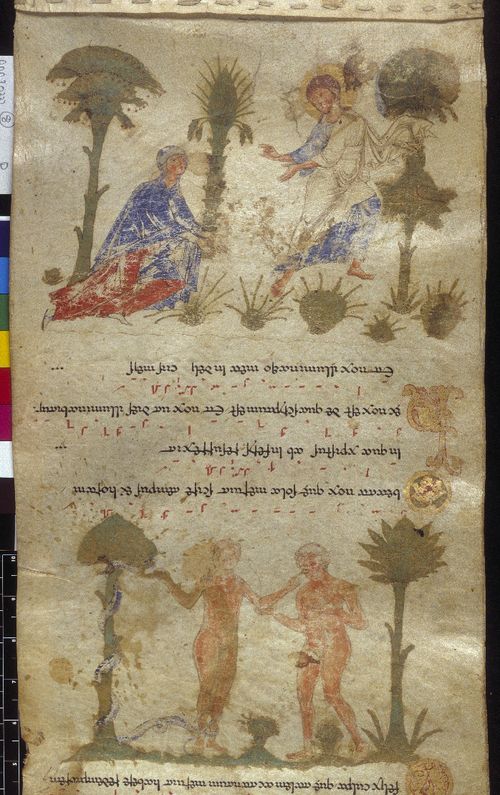 O felix culpa quę talem ac tantum meruit habere redemptorem
O beata nox quę sola meruit scire tempus & horam
in qua xpistus ab inferis resurrexit
Hec nox est de qua scriptum est Et nox ut dies illuminabitur
Et nox illuminatio mea in deli ciis meis